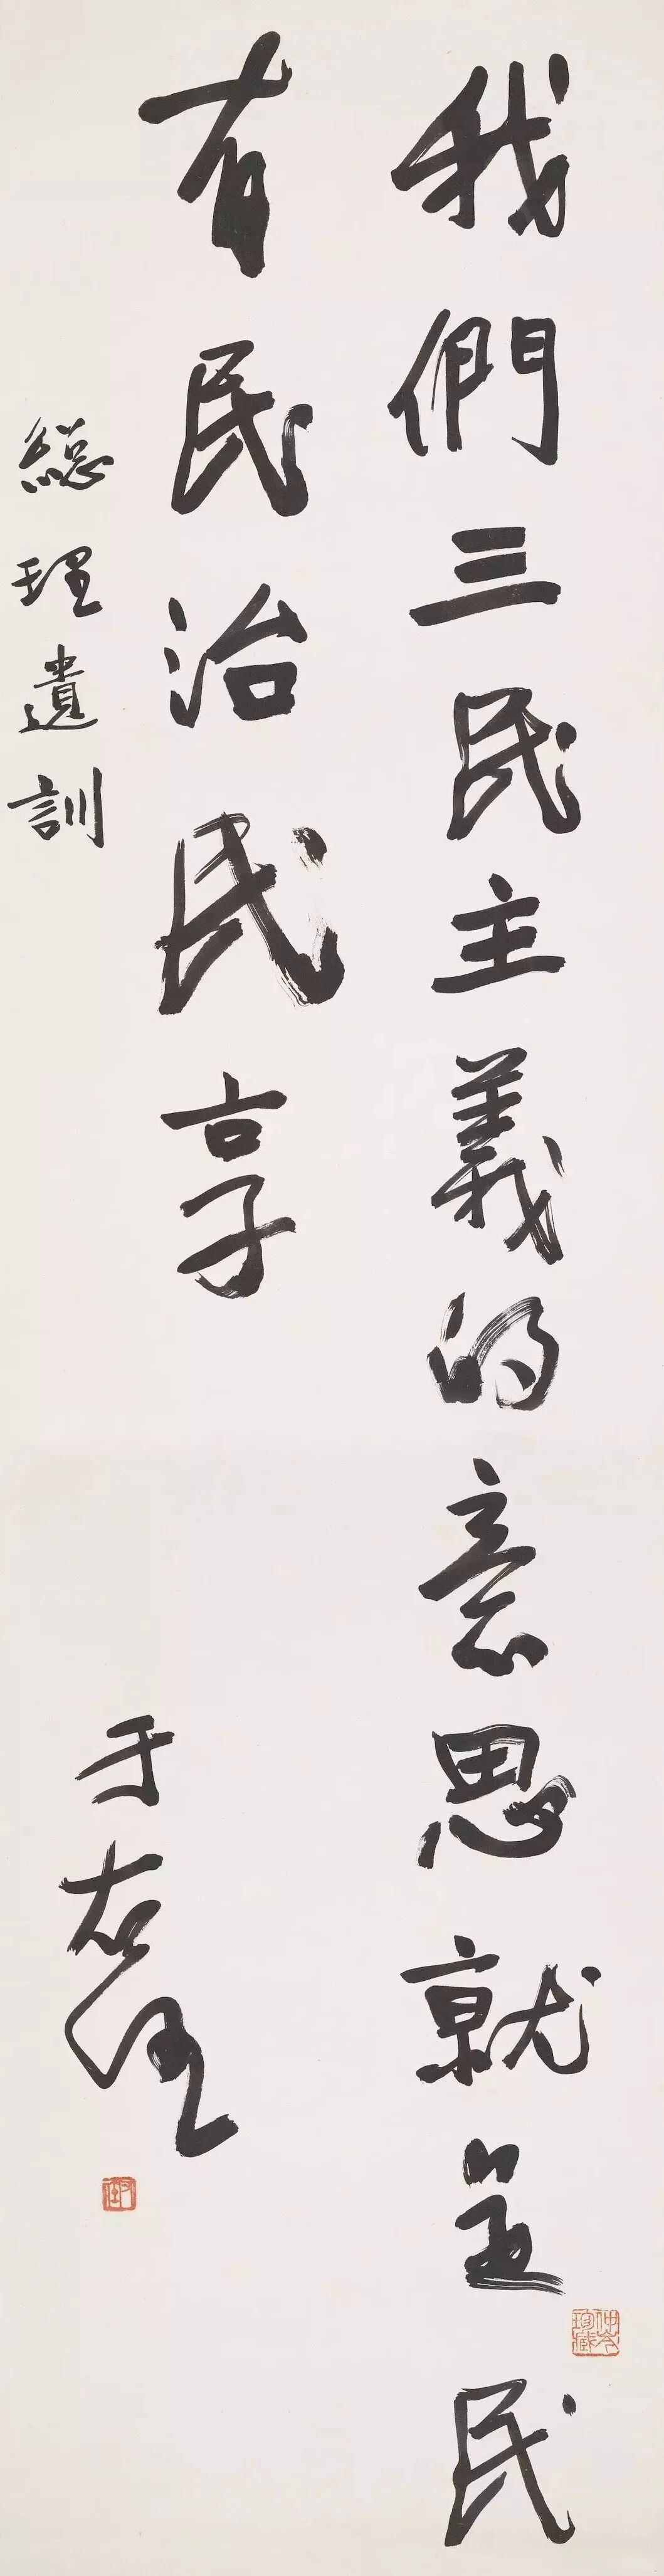 我們三民主義的意思就是民
有民治民享
總理遺訓
于右任
右任
仲岑珍藏